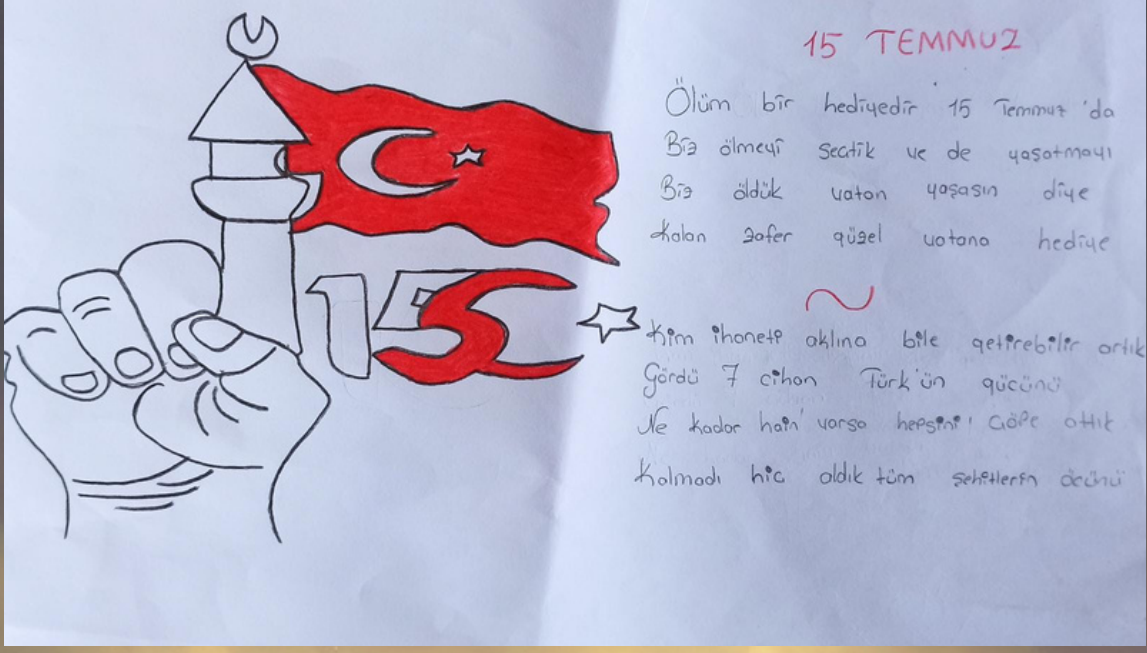 15
15 TEMMUZ
Ölüm bir hediyedir 15 Temmuz 'da
Biz ölmeyi sectik ve de yaşatmayı
Biz öldük vatan yaşasın diye
Kalan zafer güzel vatana hediye
Kim ihaneti aklına bile getirebilir artık
Gördü 7 cihan Türk'ün gücünü
Ne kadar hain varsa hepsini çöpe attık
Kalmadı hic aldık tüm şehitlerin öcünü